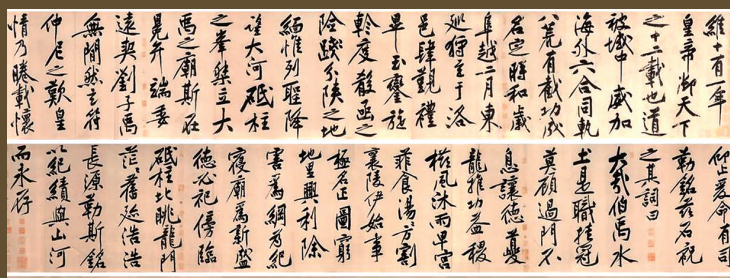 維十有一年
皇帝御天下
之十二載也道
被域中威加
海外六合同軌
八荒有截功成
名定時和歲
阜越二月東
巡狩至于洛
邑肆覲禮
畢玉鑾旋
軫度殽函之
險踐分陝之地
緬惟列聖降
望大河砥柱
之峯桀立大
禹之廟斯在
冕弁端委
遠契劉子禹
無閒然玄符
仲尼之歎皇
情乃睠載懷
仰止爰命有司
勒銘茲石祝
之其詞曰
大哉伯禹水
土是職挂冠
莫顧過門不
息讓德夔
龍推功益稷
櫛風沐雨卑宮
菲食湯湯方割
襄陵伊始事
極名正圖窮
地里興利除
害為綱為紀
寢廟為新盛
德必祀傍臨
砥柱北眺龍門
茫茫舊迹浩浩
長源勒斯銘
以紀績與山河
而永存